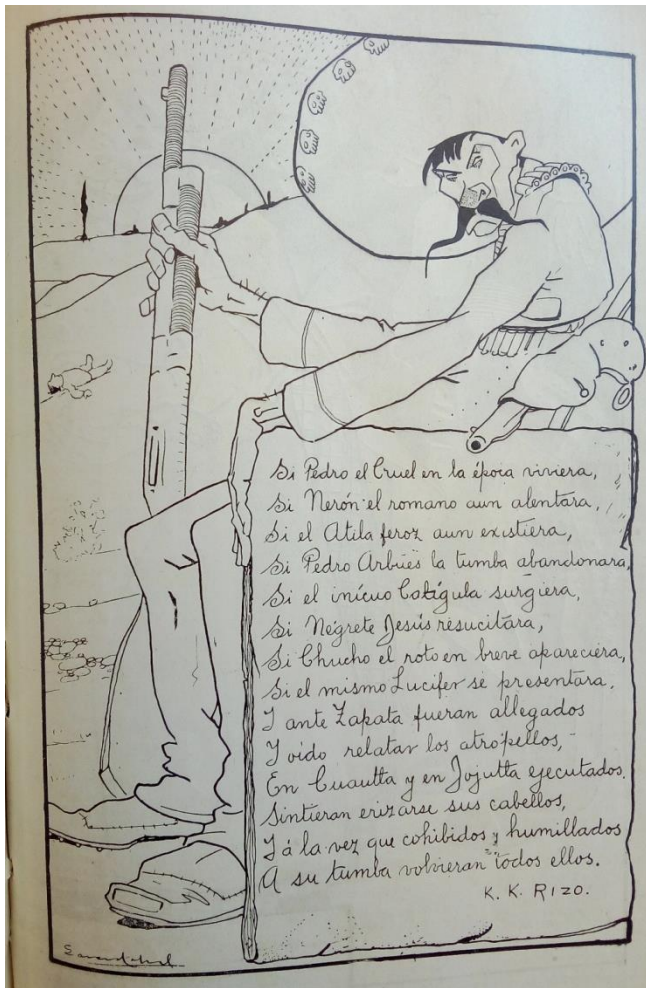 Si Pedro el Cruel en la época viviera,
Si Nerón el romano aun alentara,
Si el Atila feroz aun existiera,
Si Pedro Arbúes la tumba abandonara,
Si el inícuo Calígula surgiera,
Si Negrete Jesús resucitara,
Si Chucho el roto en breve apareciera,
Si el mismo Lucifer se presentara,
Y ante Zapata fueran allegados
Y oido relatar los atropellos,
En Cuautla y en Jojutla ejecutados.
Sintieran erizarse sus cabellos,
Y á la vez que cohibidos y humillados
A su tumba volvieran todos ellos.
K. K. RIZO.